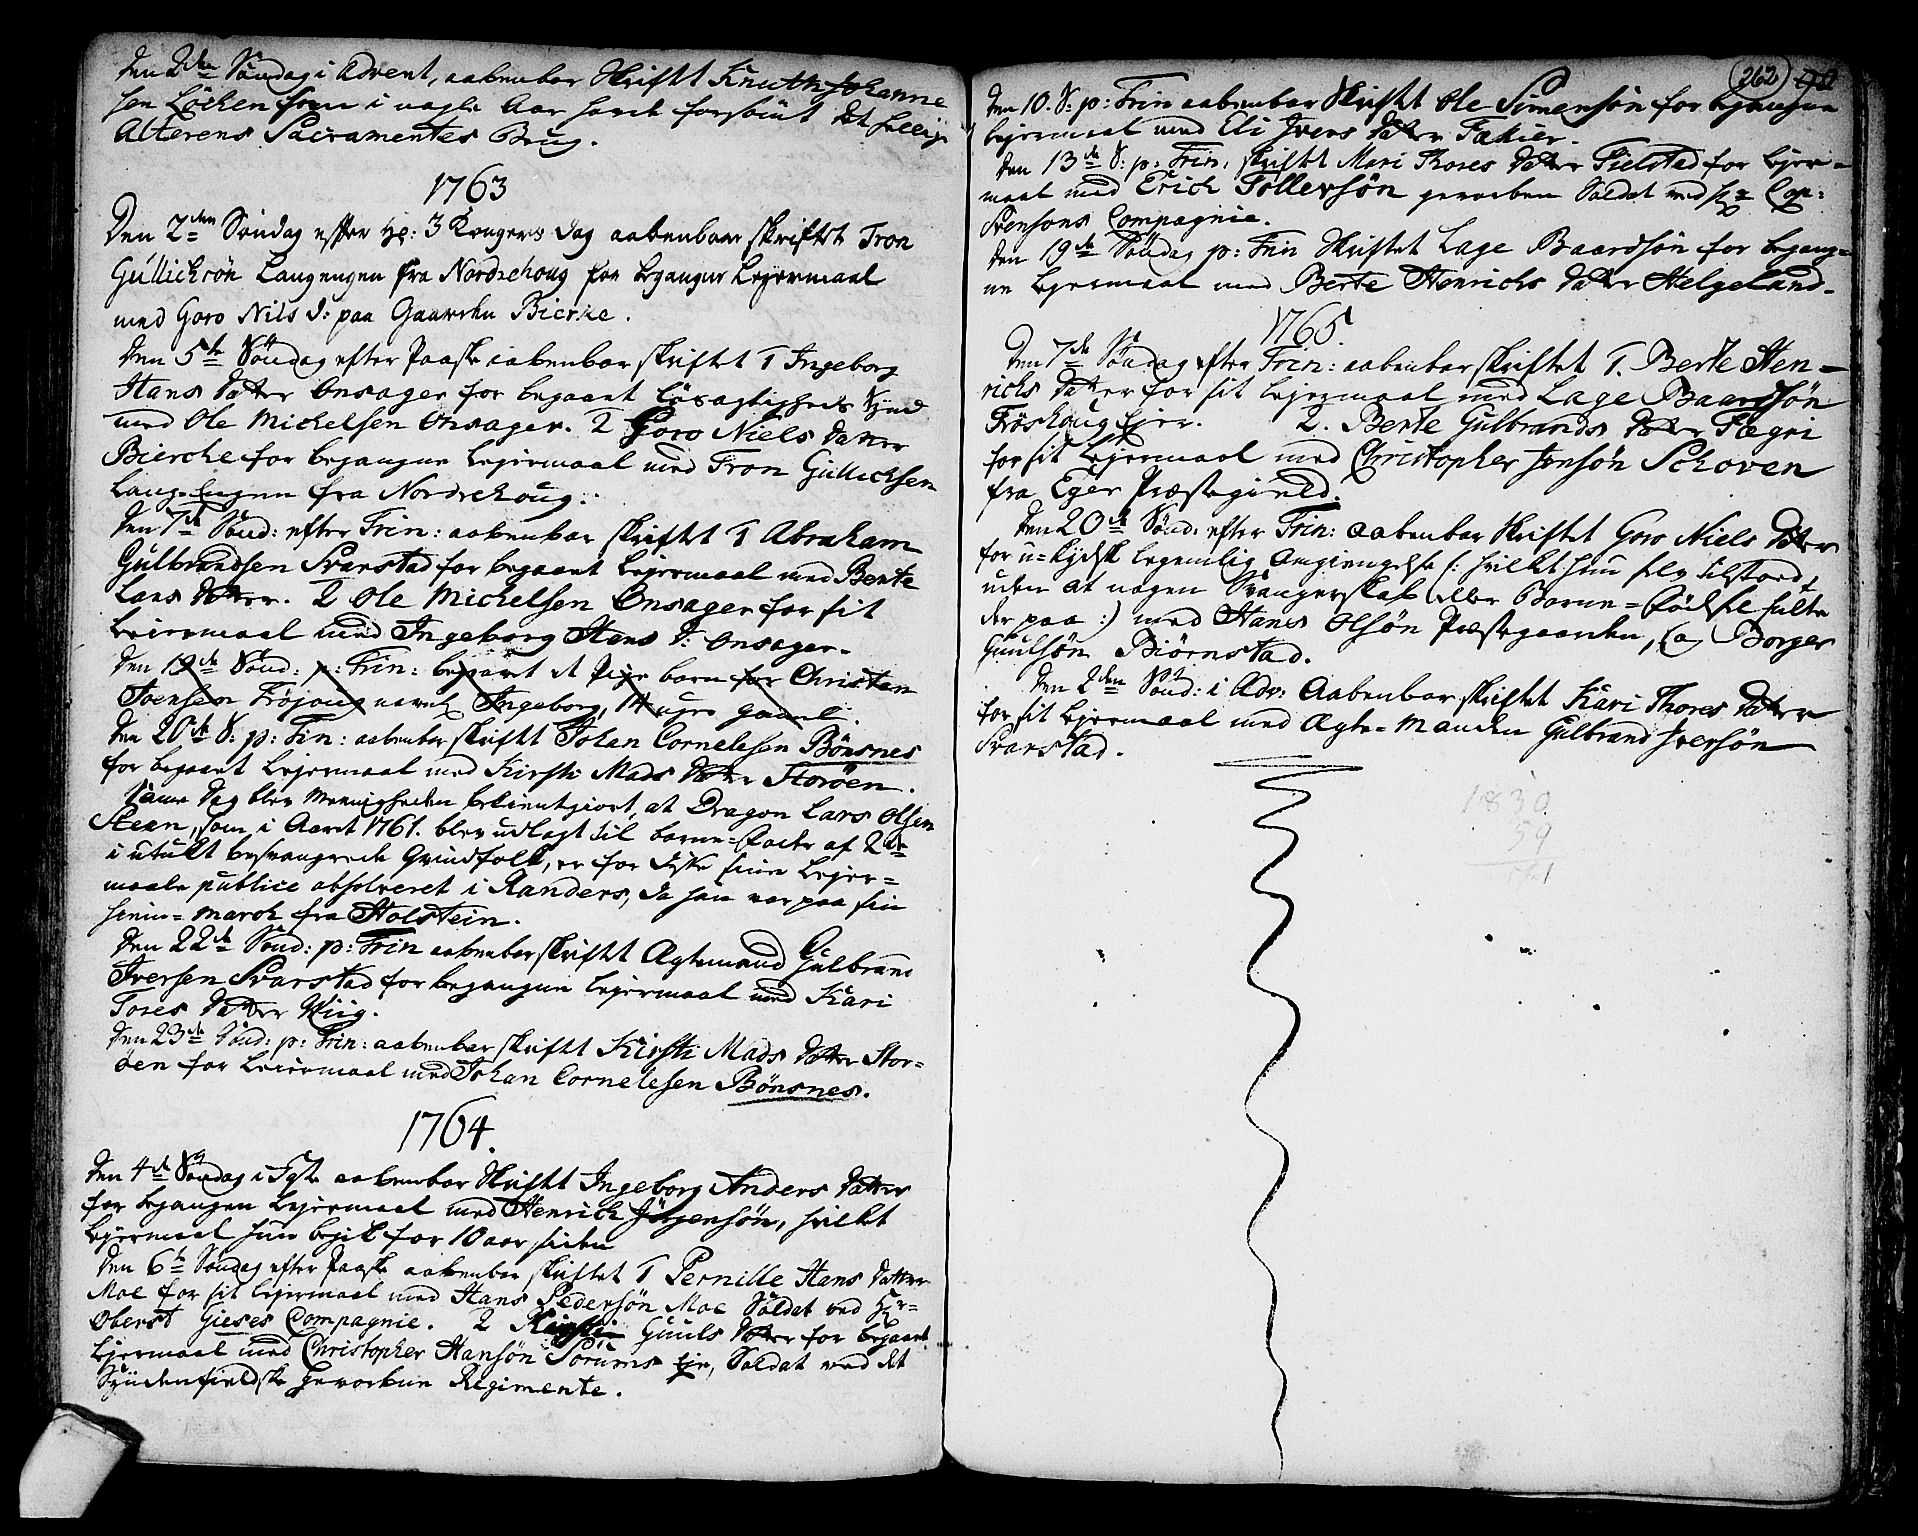 Den 2den Søndag i Advent, aabenbar Skriftet Knuth Johanne
sen Løcken som i nogle Aar havde forsømt det hellige
Alterens Sacramentes Brug.
1763
Den 2den Søndag efter He: 3 Kongers Dag aabenbar skriftet Tron
Gullichsøn Langengen fra Nordrehoug for begangne Lejermaal
med Goro Nils D: paa Gaarden Bierke.
Den 5te Søndag efter Paaske aabenbar skriftet 1 Ingeborg
Hans Datter Onsager for begaaet Løsagtigheds Synd
med Ole Michelsen Onsager. 2 Goro Niels Datter
Bierche for begangne Lejermaal med Tron Gullichsen
Lang-Engen fra Nordrehoug.
Den 7de Sønd: efter Trin: aabenbar skriftet 1 Abraham
Gulbrandsen Svarstad for begaaet Lejermaal med Berte
Lars Datter. 2 Ole Michelsen Onsager for sit
Leiermaal med Ingeborg Hans D: Onsager.
Den 19de Sønd: p: Trin: begravet et Pige barn for Christen
Svensen Frøjoug navnl Ingeborg, 14 uger gaml.
Den 20de S: p: Trin: aabenbar skriftet Johan Cornelesen Bønsnes
for begaaet Lejermaal med Kirsti Mads Datter Storøen.
Samme Dag blev Menigheden bekientgiort, at Dragon Lars Olsen
Steen, som i Aaret 1761. blev udlagt til barne-Fader af 2de
i utukt besvangrede Qvindfolk, er for diske sine Lejer=
maale publice absolveret i Randers, da han var paa sin
hiem-march fra Holstein.
Den 22de Sønd: p: Trin aabenbar skriftet Ægtemand Gulbrand
Iversen Svarstad for begangne Lejermaal med Kari
Tores Datter Wiig.
Den 23de Sønd: p: Trin: aabenbar skriftet Kirsti Mads Datter Stor=
øen for Leiermaal med Johan Cornelesen Bønsnes.
1764.
Den 4de Søndag i Faste aabenbar Skriftet Ingeborg Anders Datter
for begangen Lejermaal med Henrich Jörgensön, hvilket
Lejermaal hun begik for 10 aar siden
Den 6te Søndag efter Paaske aabenbar skriftet 1 Pernille Hans Datter
Moe for sit Lejermaal med Hans Pedersøn Moe Soldat ved Hr=
Oberst Gieses Compagnie. 2 Kirsti Guuls Datter for begaaet
Lejermaal med Christopher Hansøn Sørums Eje, Soldat ved det
Syndenfieldske Gevorbne Regimente.
262
Den 10. S: p: Trin aabenbar Skriftet Ole Simensøn for begangne
Lejermaal med Eli Ivers Datter Fækier.
Den 13de S: p: Trin: skriftet Mari Thores Datter Fielstad for Lejer=
maal med Erich Tollersøn gevorben Soldat ved Hr Cap:
Svensons Compagnie.
Den 19de Søndag p: Trin Skriftet Lage Baardsøn for begang=
ne Lejermaal med Berte Henrichs Datter Helgeland.
1765.
Den 7de Søndag efter Trin: aabenbar skriftet 1. Berte Hen=
richs Datter for sit Lejermaal med Lage Baardsøn
Frøshoug Ejer. 2. Berte Gulbrands Datter Flegri
for sit Lejermaal med Christopher Jensøn Schoven
fra Eger Præstegield.
Den 20de Sønd: efter Trin: aabenbar Skriftet Goro Niels Datter
for u-kydsk legemlig Omgiengelse (: hvilket hun selv tilstoed,
uden at nogen Svangerskab eller Barne=Fødsel fulte
der paa :) med Hans Olsøn Præstegaarden, og Borger
Guulsøn Biørnstad.
Den 2den Sønd: i Adv: Aabenbar skriftet Kari Thores Datter
for sit Lejermaal med Ægte=Manden Gulbrand Iversøn
Svarstad.
1830
59